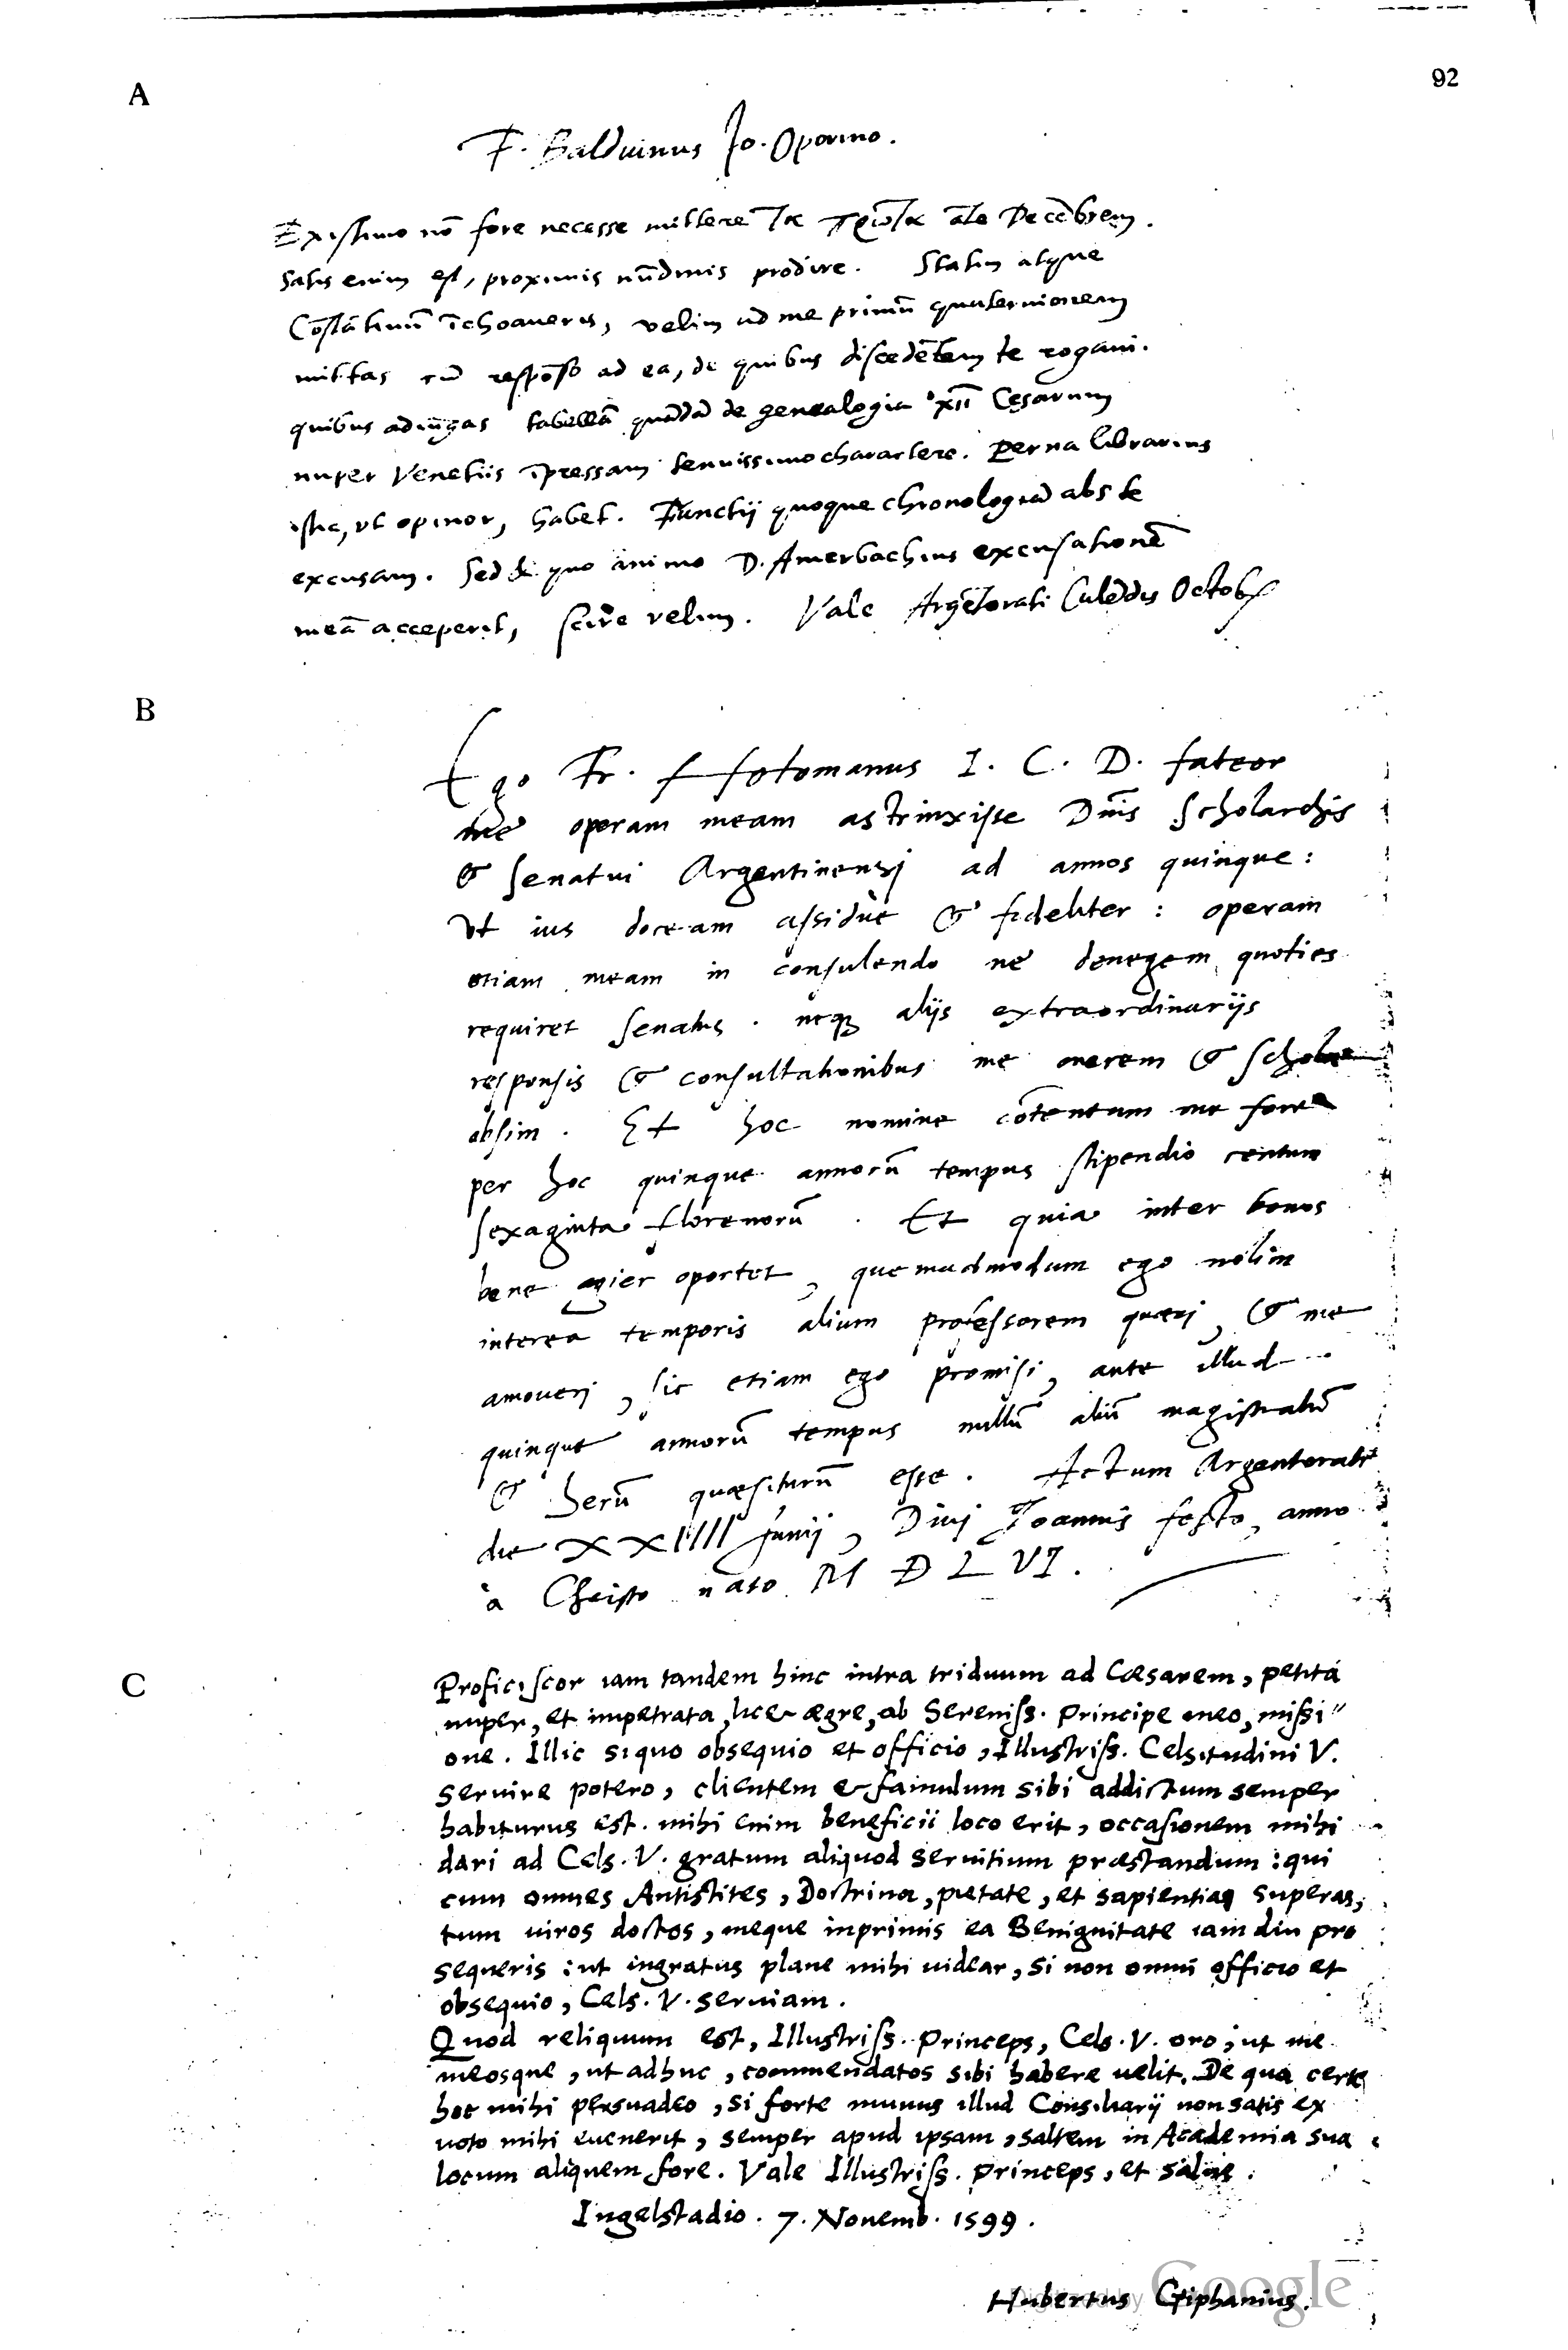 92
A
F. Balduinus Jo. Oporino.
Existimo nō fore necesse mittere τα πρῶτα āte Decēbrem.
Satis enim est, proximis nūdinis prodire. Statim atque
Cōstātinū īchoaueris, velim ad me primū quaternionem
mittas cū respōso ad ea, de quibus discedētem te rogaui.
quibus adiūgas tabellā quādā de genealogia xii Cęsarum
nuper Venetiis īpressam tenuissimo charactere. Perna librarius
istic, vt opinor, habet. Functij quoque chronologiā abs te
excusam. Sed & quo animo D. Amerbachius excusationē
meā acceperit, scire velim. Vale Argētorati Calēdis Octob
B
Ego Fr. Hotomanus I. C. D. fateor
me operam meam astrinxisse Dnīs Scholarchis
& Senatui Argentinensj ad annos quinque:
vt ius doceam assiduè & fideliter: operam
etiam meam in consulendo ne denegem quoties
requiret Senatus. neq; alijs extraordinarijs
responsis & consultationibus me onerem & scholae
absim. Et hoc nomine cōtentum me fore
per hoc quinque annorū tempus stipendio centum
sexaginta florenorū. Et quia inter bonos
bene agier oportet, quemadmodum ego nolim
interea temporis alium professorem quærj, & me
amouerj, sic etiam ego promisi, ante illud
quinque annorū tempus nullū aliū magistratū
& herū quæsiturū esse. Actum Argentorati
die XXIIII Junij, Diuj Joannis festo, anno
à Christo nato M D L VI.
C
Proficiscor iam tandem hinc intra triduum ad Cæsarem, petita
nuper, et impetrata, licet ægre, ab Sereniss. Principe meo, missi"
one. Illic siquo obsequio et officio, Illustriss. Celsitudini V.
seruire potero, clientem & famulum sibi addictum semper
habiturus est. mihi enim beneficii loco erit, occasionem mihi
dari ad Cels. V. gratum aliquod seruitium præstandum: qui
cum omnes Antistites, Doctrina, pietate, et sapientia superas,
tum uiros doctos, meque inprimis ea Benignitate iam diu pro
sequeris: ut ingratus plane mihi uidear, si non omni officio et
obsequio, Cels. V. seruiam.
Quod reliquum est, Illustriss. Princeps, Cels. V. oro, ut me
meosque, ut adhuc, commendatos sibi habere uelit. De qua certe
hoc mihi persuadeo, si forte munus illud Consiliarij non satis ex
uoto mihi euenerit, semper apud ipsam, saltem in Academia sua
locum aliquem fore. Vale Illustriss. Princeps, et salue.
Ingelstadio. 7. Nouemb. 1599.
Hubertus Giphanius.
Digitized by Google